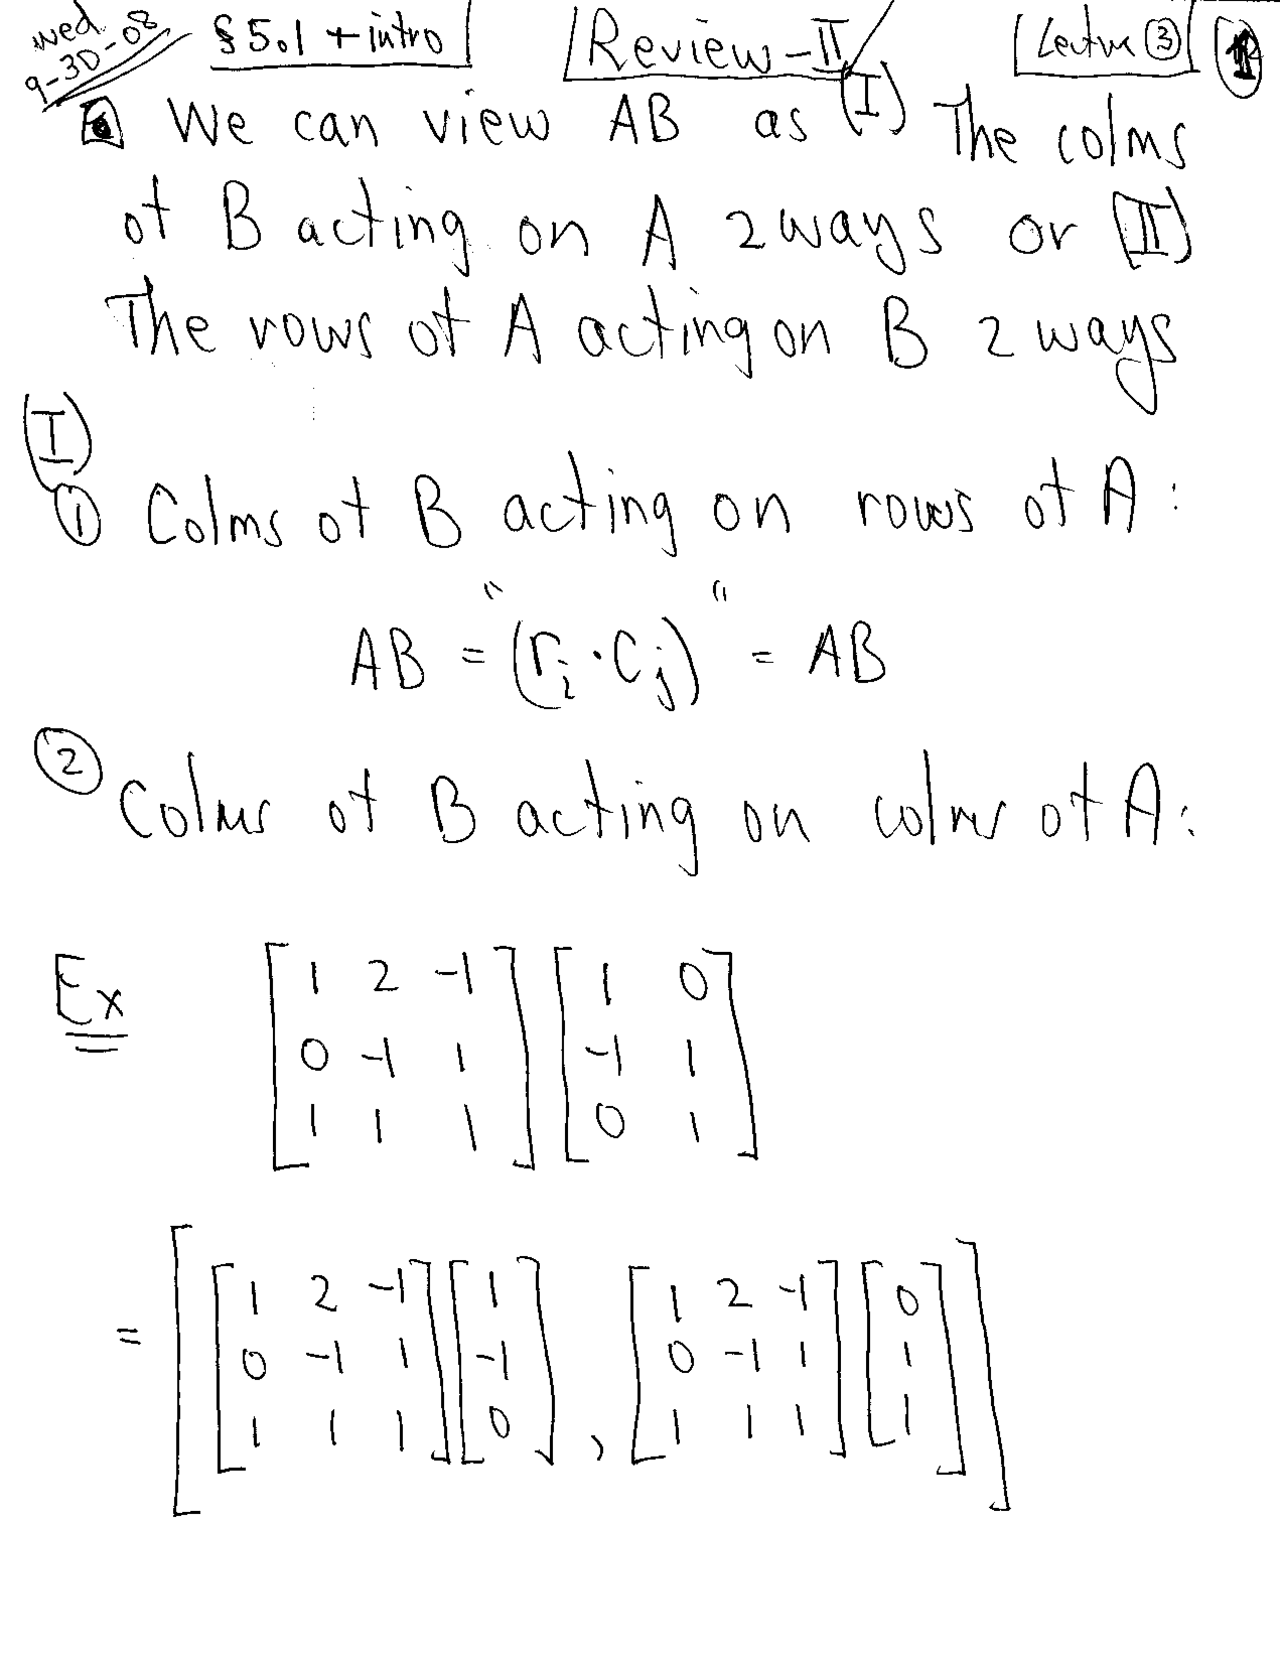 Wed 9-30-08 §5.1 + intro Review-II Lecture ③
We can view AB as (I) The colms
of B acting on A 2 ways or (II)
The rows of A acting on B 2 ways
(I)
① Colms of B acting on rows of A:
AB = "(r_i · c_j)" = AB
② Colms of B acting on colms of A:
Ex [1 2 -1] [1 0]
[0 -1 1] [-1 1]
[1 1 1] [0 1]
= [ [1 2 -1] [1] , [1 2 -1] [0] ]
[0 -1 1] [-1] [0 -1 1] [1]
[1 1 1] [0] [1 1 1] [1]